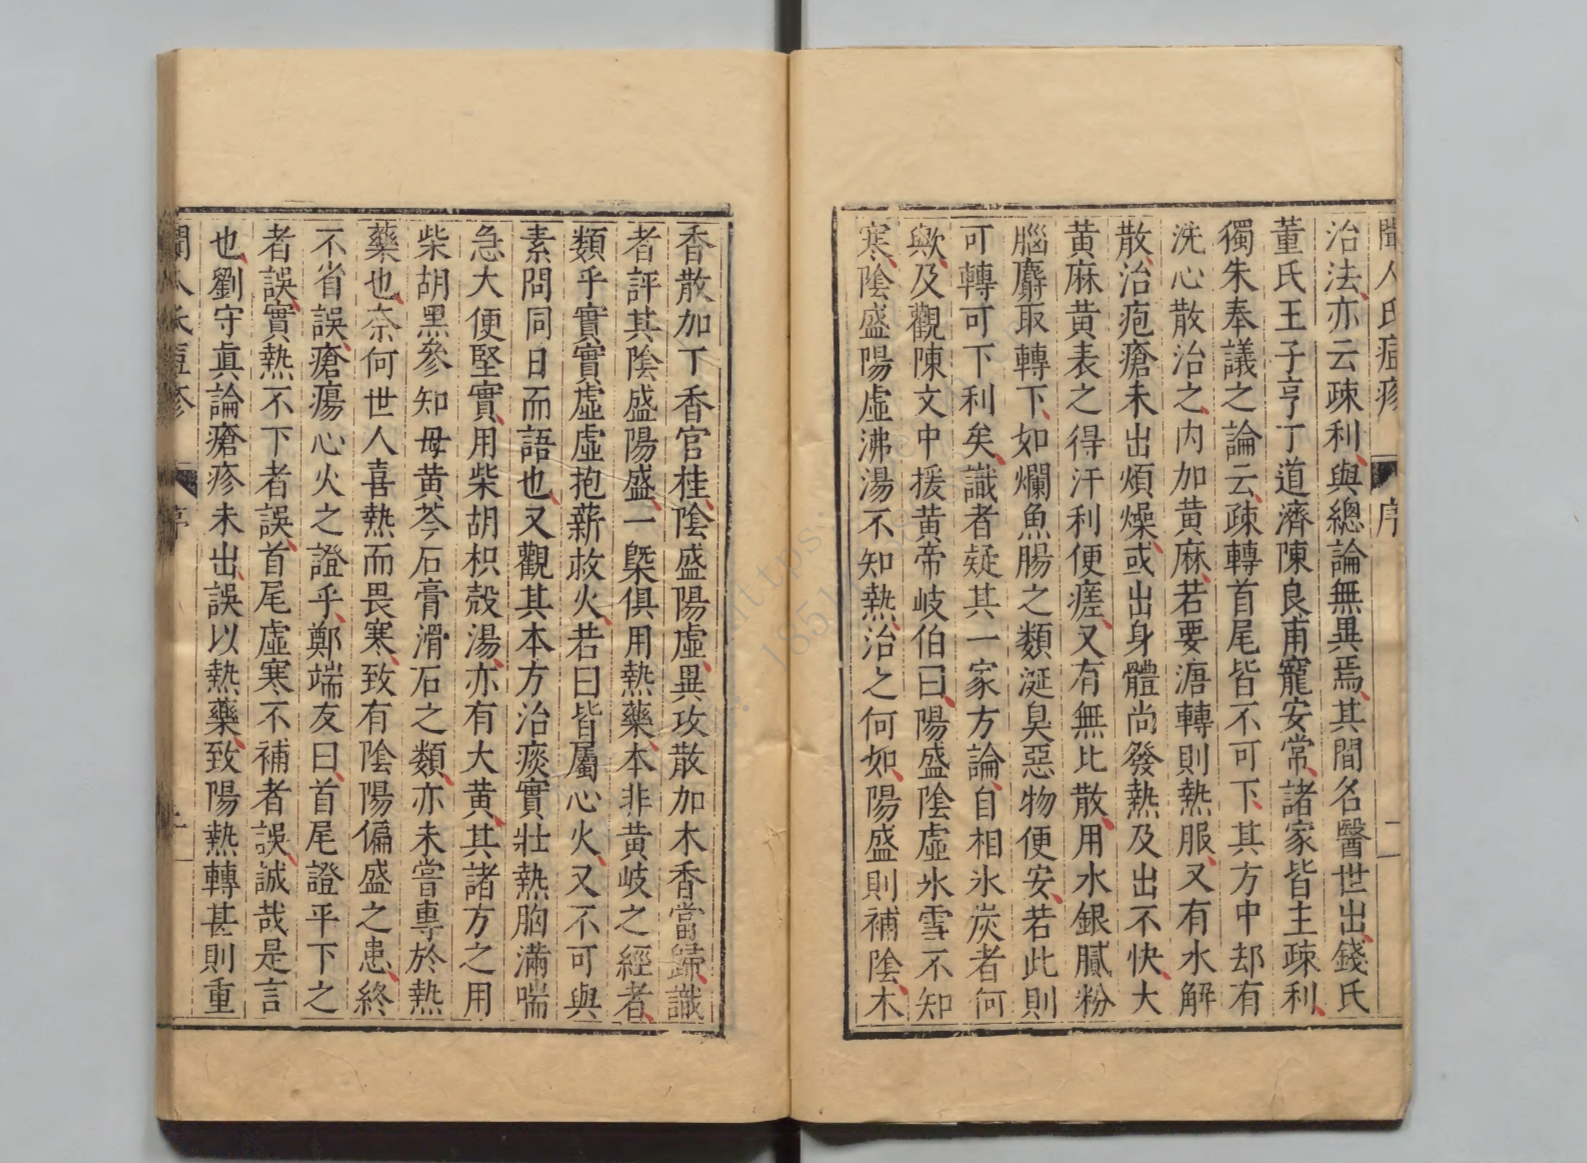 聞人氏痘疹 序 二
治法亦云疎利與總論無異焉其間名醫世出錢氏
董氏王子亨丁道濟陳良甫寵安常諸家皆主疎利
獨朱奉議之論云疎轉首尾皆不可下其方中却有
洗心散治之内加黄麻若要溏轉則熱服又有水解
散治疱瘡未出煩燥或出身體尚發熱及出不快大
黄麻黄表之得汗利便瘥又有無比散用水銀膩粉
腦麝取轉下如爛魚腸之類涎臭惡物便安若此則
可轉可下利矣識者疑其一家方論自相氷炭者何
歟及觀陳文中援黄帝岐伯曰陽盛陰虚氷雪不知
寒陰盛陽虚沸湯不知熱治之何如陽盛則補陰木
香散加丁香官桂陰盛陽虚異攻散加木香當歸識
者評其陰盛陽盛一槩俱用熱藥本非黄岐之經者
類乎實實虚虚抱薪救火若曰皆屬心火又不可與
素問同日而語也又觀其本方治痰實壯熱胸滿喘
急大便堅實用柴胡枳殼湯亦有大黄其諸方之用
柴胡黑參知母黄芩石膏滑石之類亦未嘗專於熱
藥也奈何世人喜熱而畏寒致有陰陽偏盛之患終
不省誤瘡瘍心火之證乎鄭端友曰首尾證平下之
者誤實熱不下者誤首尾虚寒不補者誤誠哉是言
也劉守眞論瘡疹未出誤以熱藥致陽熱轉甚則重
聞人氏痘疹 序